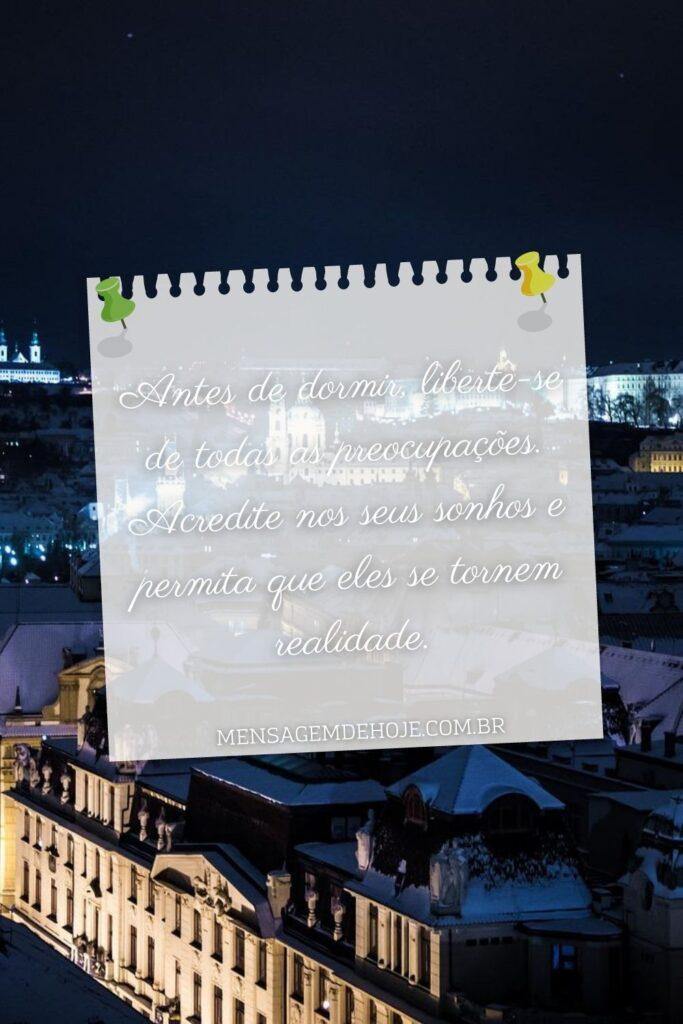 Antes de dormir, liberte-se
de todas as preocupações.
Acredite nos seus sonhos e
permita que eles se tornem
realidade.
MENSAGEMDEHOJE.COM.BR